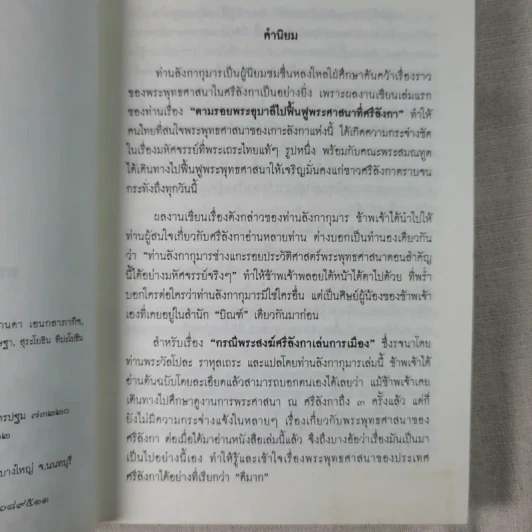 คำนิยม
ท่านลังกากุมารเป็นผู้นิยมชมชื่นหลงใหลใฝ่ศึกษาค้นคว้าเรื่องราว
ของพระพุทธศาสนาในศรีลังกาเป็นอย่างยิ่ง เพราะผลงานเขียนเล่มแรก
ของท่านเรื่อง "ตามรอยพระอุบาลีไปฟื้นฟูพระศาสนาที่ศรีลังกา" ทำให้
คนไทยที่สนใจพระพุทธศาสนาของเกาะลังกาแห่งนี้ ได้เกิดความกระจ่างชัด
ในเรื่องมหัศจรรย์ที่พระเถระไทยแท้ๆ รูปหนึ่ง พร้อมกับคณะพระสมณทูต
ได้เดินทางไปฟื้นฟูพระพุทธศาสนาให้เจริญมั่นคงแก่ชาวศรีลังกาตราบจน
กระทั่งถึงทุกวันนี้
ผลงานเขียนเรื่องดังกล่าวของท่านลังกากุมาร ข้าพเจ้าได้นำไปให้
ท่านผู้สนใจเกี่ยวกับศรีลังกาอ่านหลายท่าน ต่างบอกเป็นทำนองเดียวกัน
ว่า "ท่านลังกากุมารช่างแกะรอยประวัติศาสตร์พระพุทธศาสนาตอนสำคัญ
นี้ได้อย่างมหัศจรรย์จริงๆ" ทำให้ข้าพเจ้าพลอยได้หน้าได้ตาไปด้วย ที่พร่ำ
บอกใครต่อใครว่าท่านลังกากุมารมิใช่ใครอื่น แต่เป็นศิษย์ผู้น้องของข้าพเจ้า
เองที่เคยอยู่ในสำนัก "บิณฑ์" เดียวกันมาก่อน
สำหรับเรื่อง "กรณีพระสงฆ์ศรีลังกาเล่นการเมือง" ซึ่งรจนาโดย
ท่านพระวัลโปละ ราหุลเถระ และแปลโดยท่านลังกากุมารเล่มนี้ ข้าพเจ้าได้
อ่านต้นฉบับโดยละเอียดแล้วสามารถบอกตนเองได้เลยว่า แม้ข้าพเจ้าเคย
เดินทางไปศึกษาดูงานการพระศาสนา ณ ศรีลังกาถึง ๓ ครั้งแล้ว แต่ก็
ยังไม่มีความกระจ่างแจ้งในหลายๆ เรื่องเกี่ยวกับพระพุทธศาสนาของ
ศรีลังกา ต่อเมื่อได้มาอ่านหนังสือเล่มนี้แล้ว จึงถึงบางอ้อว่าเรื่องมันเป็นมา
เป็นไปอย่างนี้เอง ทำให้รู้และเข้าใจเรื่องพระพุทธศาสนาของประเทศ
ศรีลังกาได้อย่างที่เรียกว่า "ดีมาก"
านดา เอนกลาภากิจ,
ษฐา, สุระโยธิน ทิปะโยธิน
รปฐม ๗๓๒๒๐
บางใหญ่ จ.นนทบุรี